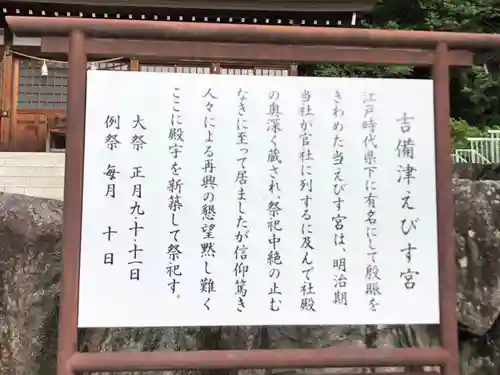 吉備津えびす宮
江戸時代県下に有名にして殷賑を
きわめた当えびす宮は、明治期
当社が官社に列するに及んで社殿
の奥深く蔵され、祭祀中絶の止む
なきに至って居ましたが信仰篤き
人々による再興の懇望黙し難く
ここに殿宇を新築して祭祀す。
大祭 正月九・十・十一日
例祭 毎月 十日